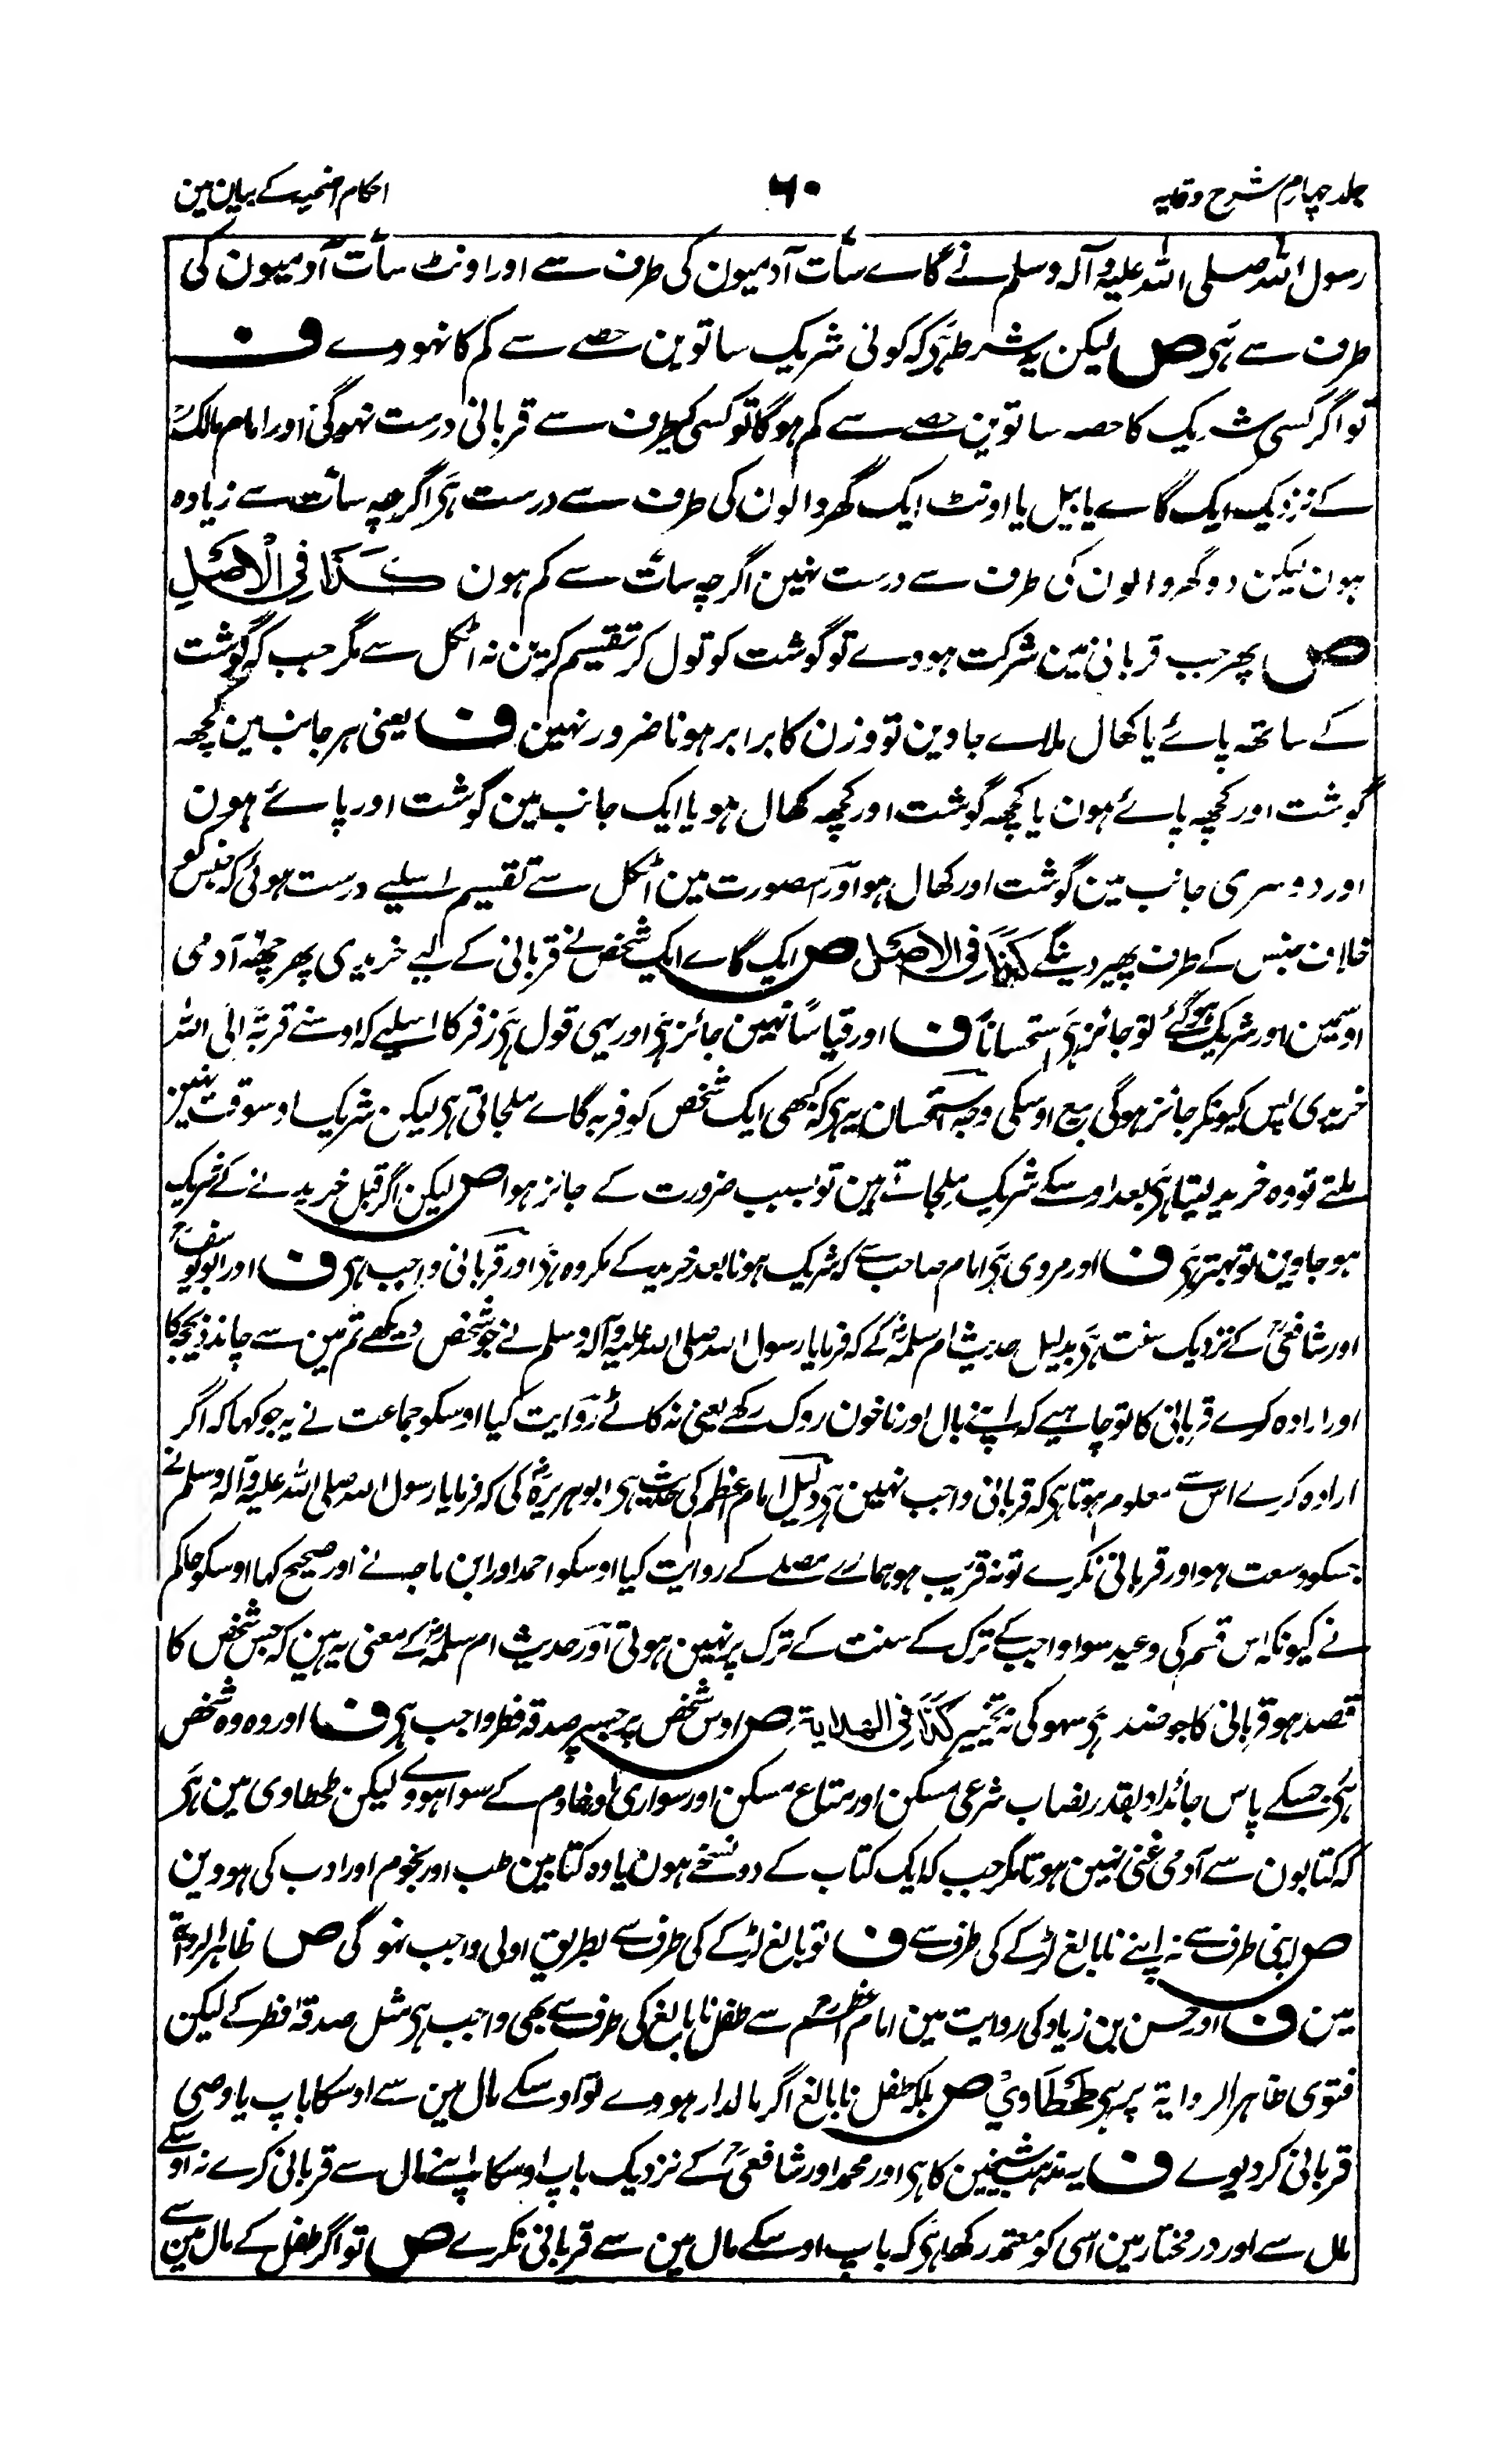 جلد چہارم شرح وقایہ
۶۰
احکام اضحیہ کے بیان مین
رسول اللہ صلی اللہ علیہ وآلہ وسلم نے گاے سات آدمیون کی طرف سے اور اونٹ سات آدمیون کی
طرف سے ہی ص لیکن یہ شرط ہی کہ کوئی شریک ساتوین حصے سے کم کا نہووے ف
تو اگر کسی شریک کا حصہ ساتوین حصے سے کم ہوگا تو کسی کیطرف سے قربانی درست نہوگی اور امام مالک رح
کے نزدیک ایک گاے یا بیل یا اونٹ ایک گھر والون کی طرف سے درست ہی اگرچہ سات سے زیادہ
ہون لیکن دو گھر والون کی طرف سے درست نہین اگرچہ سات سے کم ہون کَذَا فِی الْاَصْلِ
ص پھر جب قربانی مین شرکت ہووے تو گوشت کو تول کر تقسیم کرین نہ اٹکل سے مگر جب کہ گوشت
کے ساتھ پائے یا کھال ملاے جاوین تو وزن کا برابر ہونا ضرور نہین ف یعنی ہر جانب مین کچھ
گوشت اور کچھ پائے ہون یا کچھ گوشت اور کچھ کھال ہو یا ایک جانب مین گوشت اور پائے ہون
اور دوسری جانب مین گوشت اور کھال ہو اور اسصورت مین اٹکل سے تقسیم اسلیے درست ہوئی کہ جنس کو
خلاف جنس کے طرف پھیر دینگے کَذَا فِی الاصل ص ایک گاے ایک شخص نے قربانی کے لیے خریدی پھر چھہ آدمی
اوسمین اور شریک ہوگئے تو جائز ہی استحساناً ف اور قیاسًا نہین جائز ہی اور یہی قول ہی زفر کا اسلیے کہ اوسنے قربۃً الی اللہ
خریدی پس کیونکر جائز ہوگی بیع اوسکی وجہ استحسان یہ ہی کہ کبھی ایک شخص کو فربہ گاے ملجاتی ہی لیکن شریک اوسوقت نہین
ملتے تو وہ خرید لیتا ہی بعد اوسکے شریک ملجاتے ہین تو بسبب ضرورت کے جائز ہوا ص لیکن اگر قبل خریدنے کے شریک
ہو جاوین تو بہتر ہی ف اور مروی ہی امام صاحب سے کہ شریک ہونا بعد خرید کے مکروہ ہی اور قربانی واجب ہی ف اور ابو یوسف رح
اور شافعی رح کے نزدیک سنت ہی بدلیل حدیث ام سلمہ رض کے کہ فرمایا رسول اللہ صلی اللہ علیہ وآلہ وسلم نے جو شخص دیکھے تم مین سے چاند ذیحجہ کا
اور ارادہ کرے قربانی کا تو چاہیے کہ اپنے بال اور ناخون روک رکھے یعنی نہ کاٹے روایت کیا اوسکو جماعت نے یہ جو کہا کہ اگر
ارادہ کرے اس سے معلوم ہوتا ہی کہ قربانی واجب نہین ہی دلیل امام اعظم کی حدیث ہی ابو ہریرہ رض کی کہ فرمایا رسول اللہ صلی اللہ علیہ وآلہ وسلم نے
جسکو وسعت ہو اور قربانی نکرے تو نہ قریب ہو ہمارے مصلے کے روایت کیا اوسکو احمد اور ابن ماجہ نے اور صحیح کہا اوسکو حاکم
نے کیونکہ اس قسم کی وعید سوا واجب کے ترک کے سنت کے ترک پر نہین ہوتی اور حدیث ام سلمہ رض کے معنی یہ ہین کہ جس شخص کا
قصد ہو قربانی کا جو ضد ہی سہو کی نہ تخییر کَذَا فِی الهدایة ص اوس شخص پر جسپر صدقہ فطر واجب ہی ف اور وہ وہ شخص
ہی جسکے پاس جائداد بقدر نصاب شرعی مسکن اور متاع مسکن اور سواری اور خادم کے سوا ہووے لیکن طحطاوی مین ہی
کہ کتابون سے آدمی غنی نہین ہوتا مگر جب کہ ایک کتاب کے دو نسخے ہون یا وہ کتابین طب اور نجوم اور ادب کی ہووین
ص اپنی طرف سے نہ اپنے نابالغ لڑکے کی طرف سے ف تو بالغ لڑکے کی طرف سے بطریق اولی واجب نہوگی ص ظاہر الروایۃ
مین ف اور حسن بن زیاد کی روایت مین امام اعظم رح سے طفل نابالغ کی طرف سے بھی واجب ہی مثل صدقہ فطر کے لیکن
فتوی ظاہر الروایۃ پر ہی طحطاوی ص بلکہ طفل نابالغ اگر مالدار ہووے تو اوسکے مال مین سے اوسکا باپ یا وصی
قربانی کردیوے ف یہ مذہب شیخین کا ہی اور محمد اور شافعی رح کے نزدیک باپ اوسکا اپنے مال سے قربانی کرے نہ اوسکے
مال سے اور در مختار مین اسی کو معتمد رکھا ہی کہ باپ اوسکے مال مین سے قربانی نکرے ص تو اگر طفل کے مال مین سے